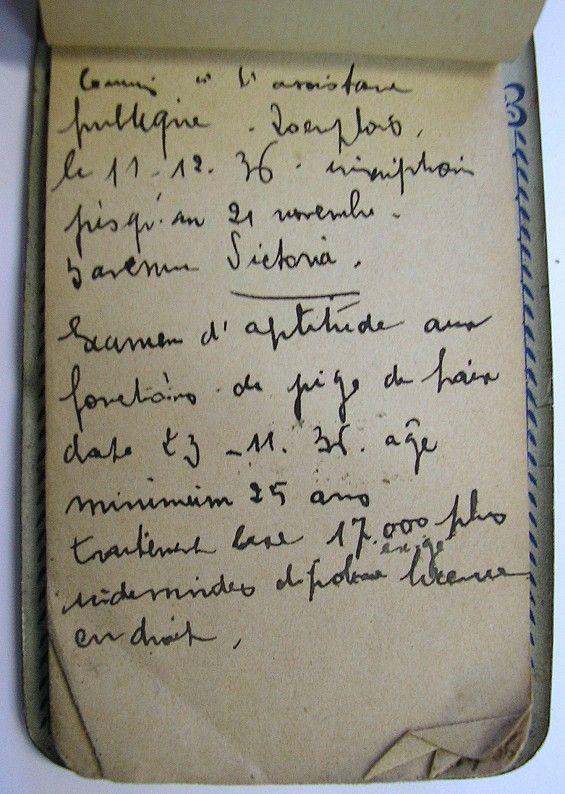 Commis à l'assistance
publique. 20 emplois,
le 11-12. 36. inscription
jusqu'au 21 novembre.
3 avenue Victoria.
Examen d'aptitude aux
fonctions de juge de paix
date 23-11. 36. age
minimum 25 ans
traitement base 17.000 plus
exigé
indemnides diplome licence
en droit,